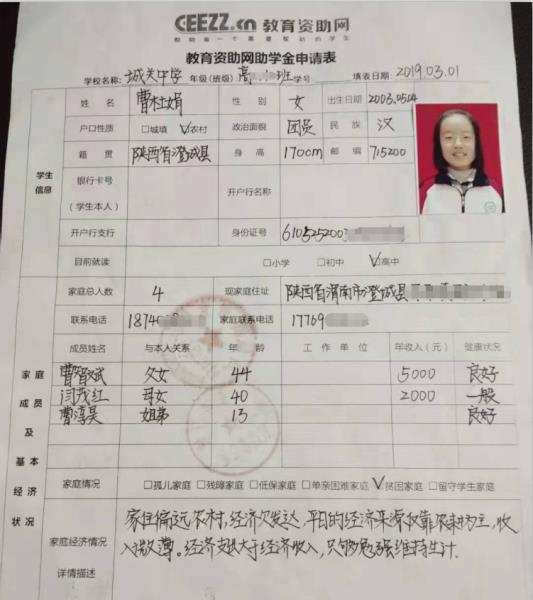 CEEZZ.cn 教育资助网
教育资助网助学金申请表
学校名称: 城关中学 年级(班级) 高 班 学号 填表日期: 2019.03.01
学生信息
姓名 曹杜娟 性别 女 出生日期 2003.0514
户口性质 □城填 ☑农村 政治面貌 团员 民族 汉
籍贯 陕西省澄城县 身高 170cm 邮编 715200
银行卡号 (学生本人) 开户行名称
开户行支行 身份证号 610525200
目前就读 □小学 □初中 ☑高中
家庭成员及基本经济状况
家庭总人数 4 现家庭住址 陕西省渭南市澄城县
联系电话 1874 家庭联系电话 17769
成员姓名 与本人关系 年龄 工作单位 年收入(元) 健康状况
曹智斌 父女 44 5000 良好
闫茂红 母女 40 2000 一般
曹淳昊 姐弟 13 良好
家庭情况 □孤儿家庭 □残障家庭 □低保家庭 □单亲困难家庭 ☑贫困家庭 □留守学生家庭
家庭经济情况详情描述
家住偏远农村,经济欠发达,平日的经济来源仅靠农耕为主,收
入微薄。经济支出大于经济收入,只够勉强维持生计.